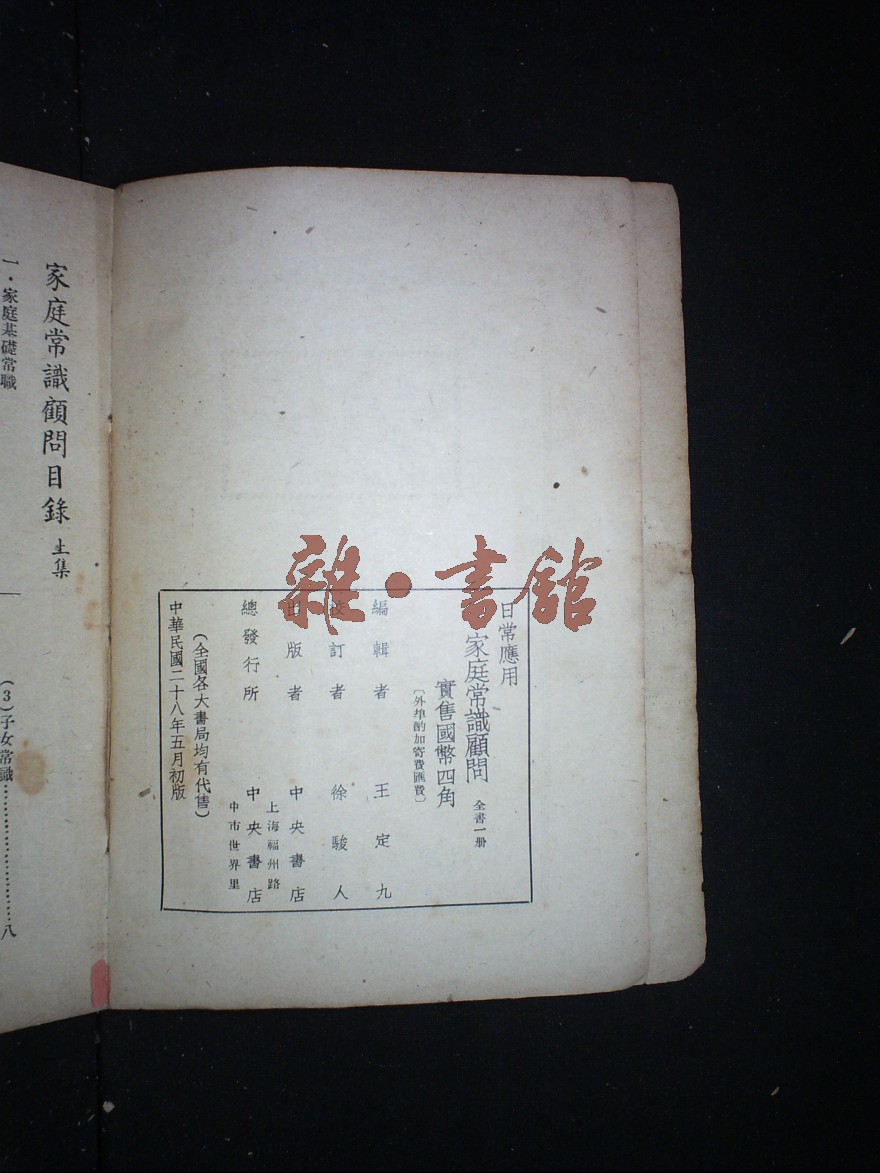 雜·書館
日常應用
家庭常識顧問
全書一册
實售國幣四角
〔外埠酌加寄費匯費〕
編輯者 王定九
校訂者 徐駿人
出版者 中央書店
上海福州路
總發行所 中央書店
中市世界里
(全國各大書局均有代售)
中華民國二十八年五月初版
家庭常識顧問目錄 上集
一·家庭基礎常職
(3)子女常識……………………八